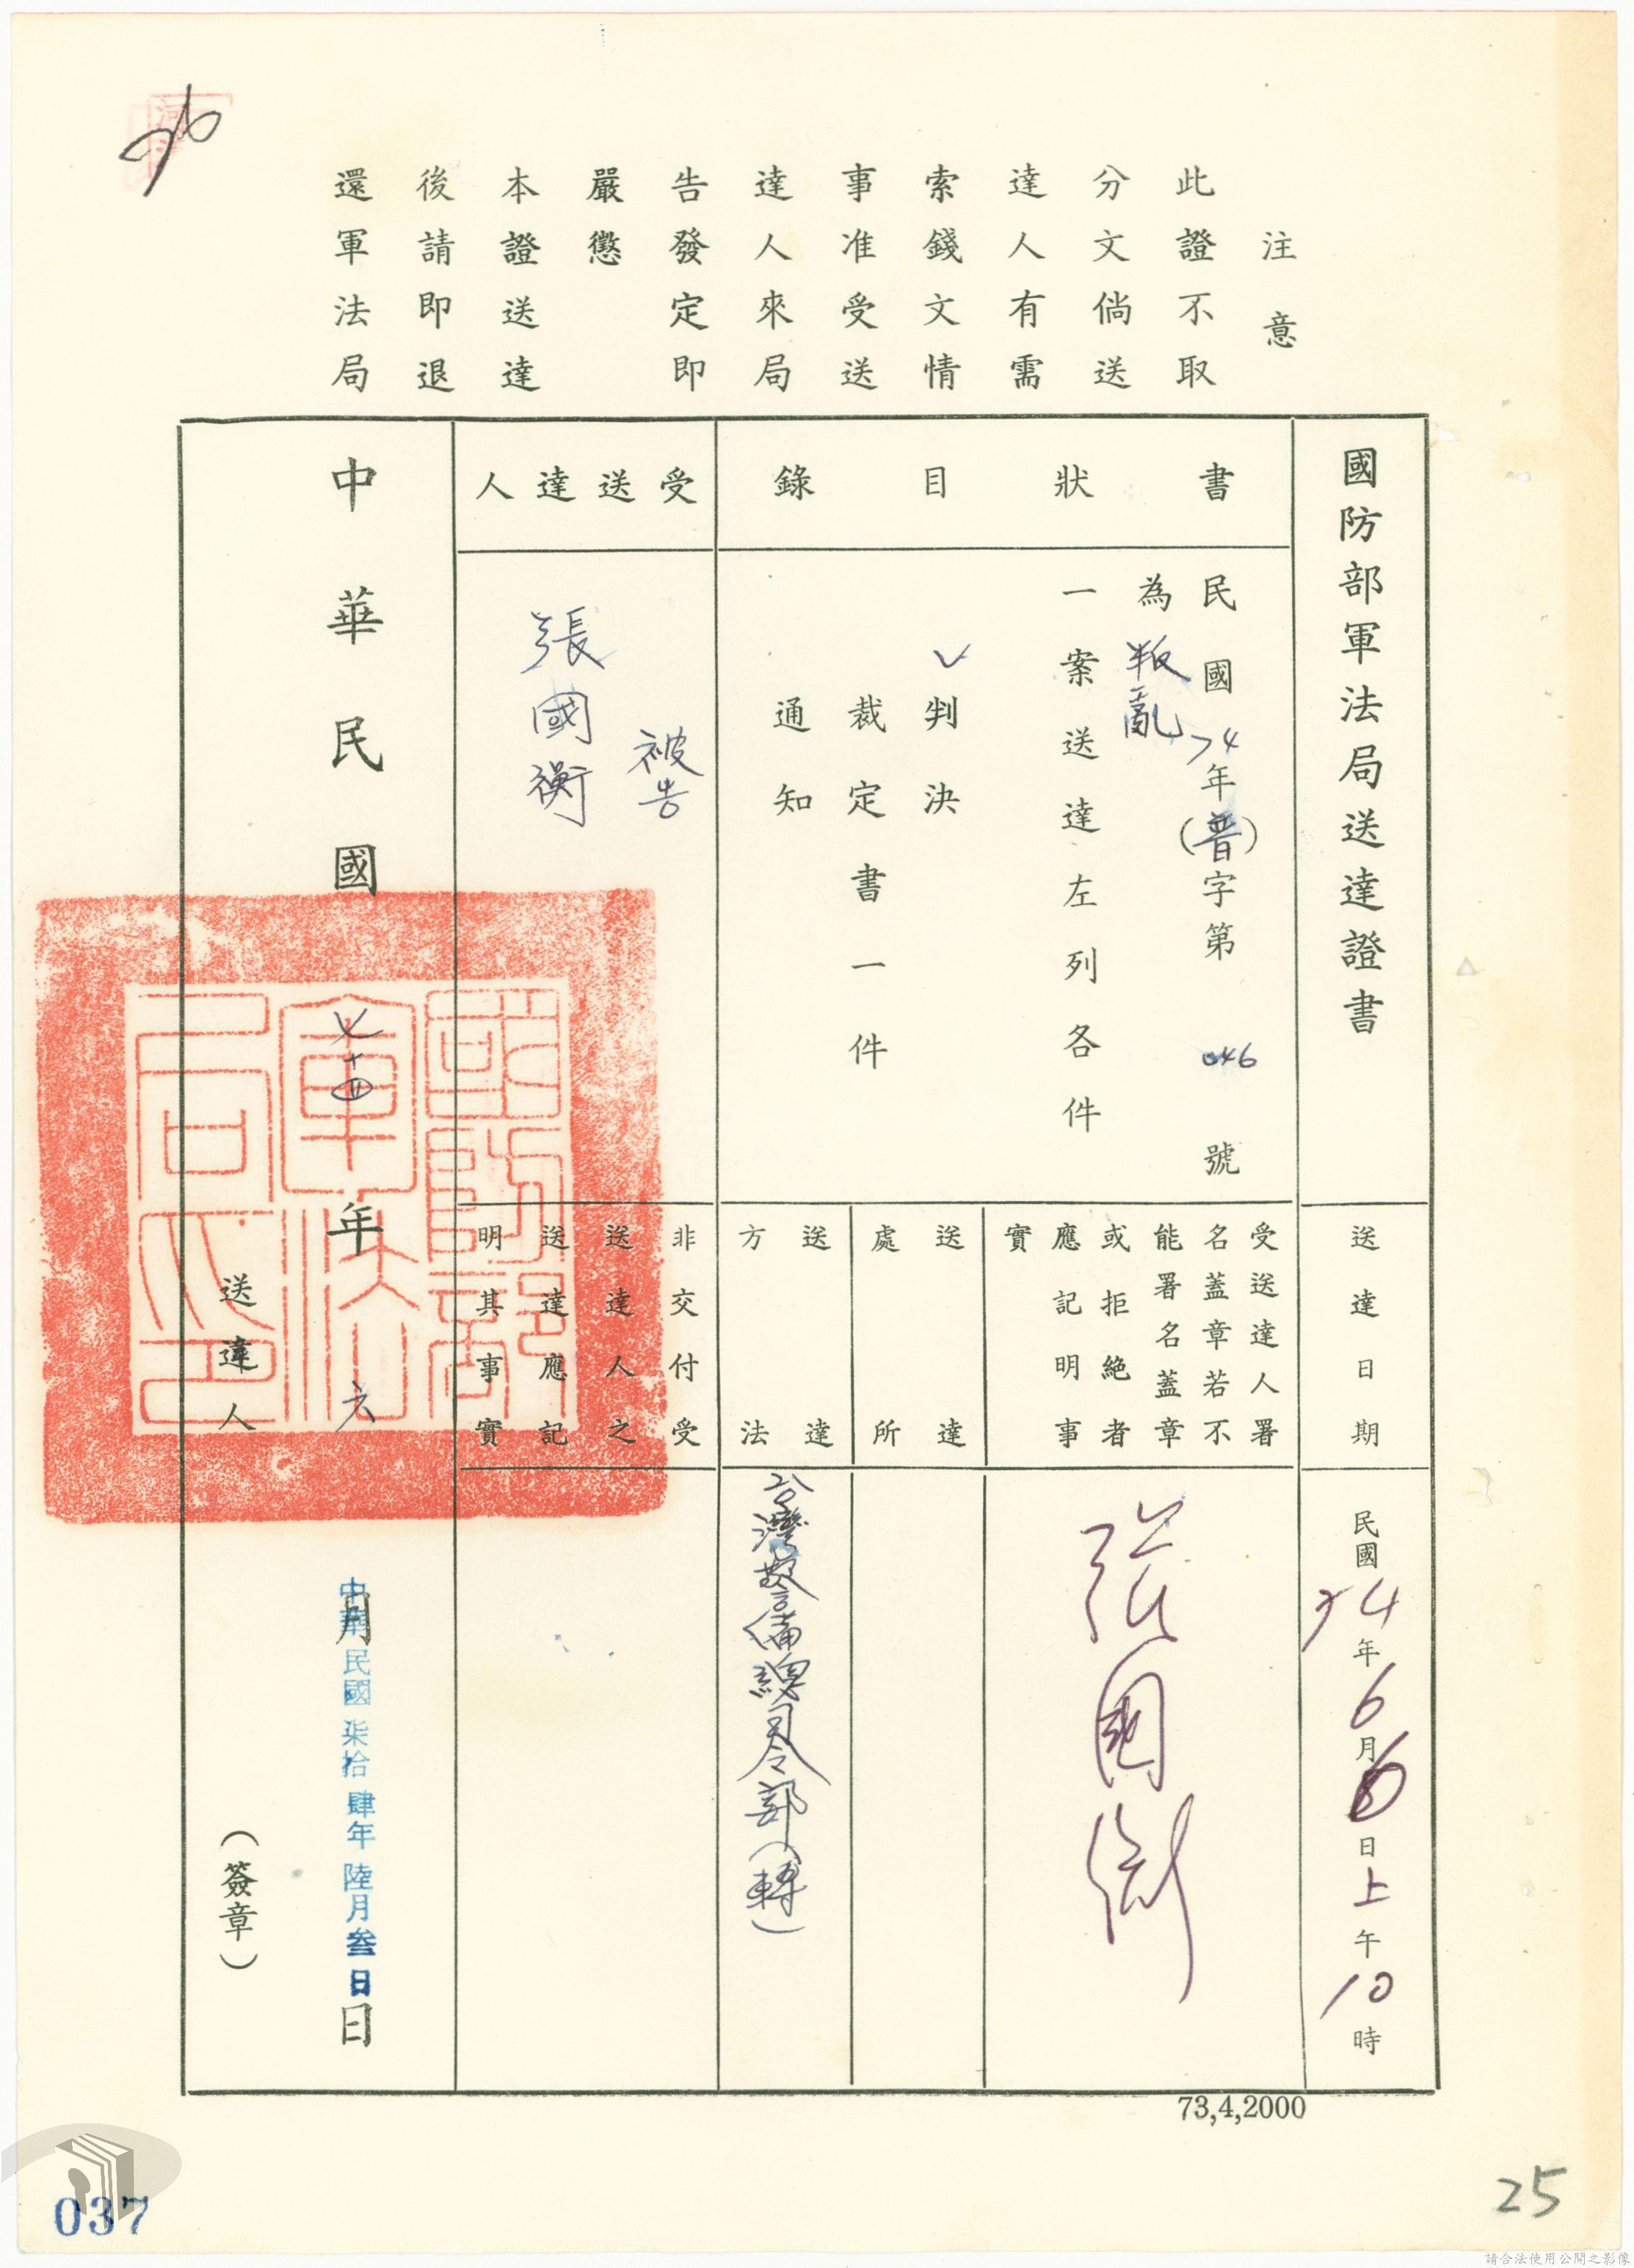 注意
此證不取
分文倘送
達人有需
索錢文情
事准受送
達人來局
告發定即
嚴懲
本證送達
後請即退
還軍法局
國防部軍法局送達證書
送達日期
民國74年6月6日上午10時
書狀目錄
民國74年(普)字第046號
為叛亂
一案送達左列各件
✓判決
裁定書一件
通知
受送達人署
名蓋章若不
能署名蓋章
或拒絶者
應記明事
實
張國衡
送達
處所
送達
方法
台灣警備總司令部(轉)
受送達人
被告
張國衡
非交付受
送達人之
送達應記
明其事實
中華民國七十四年六月日
中華民國柒拾肆年陸月叁日
送達人
(簽章)
國防部
軍法
局之印
73,4,2000
25
037
請合法使用公開之影像